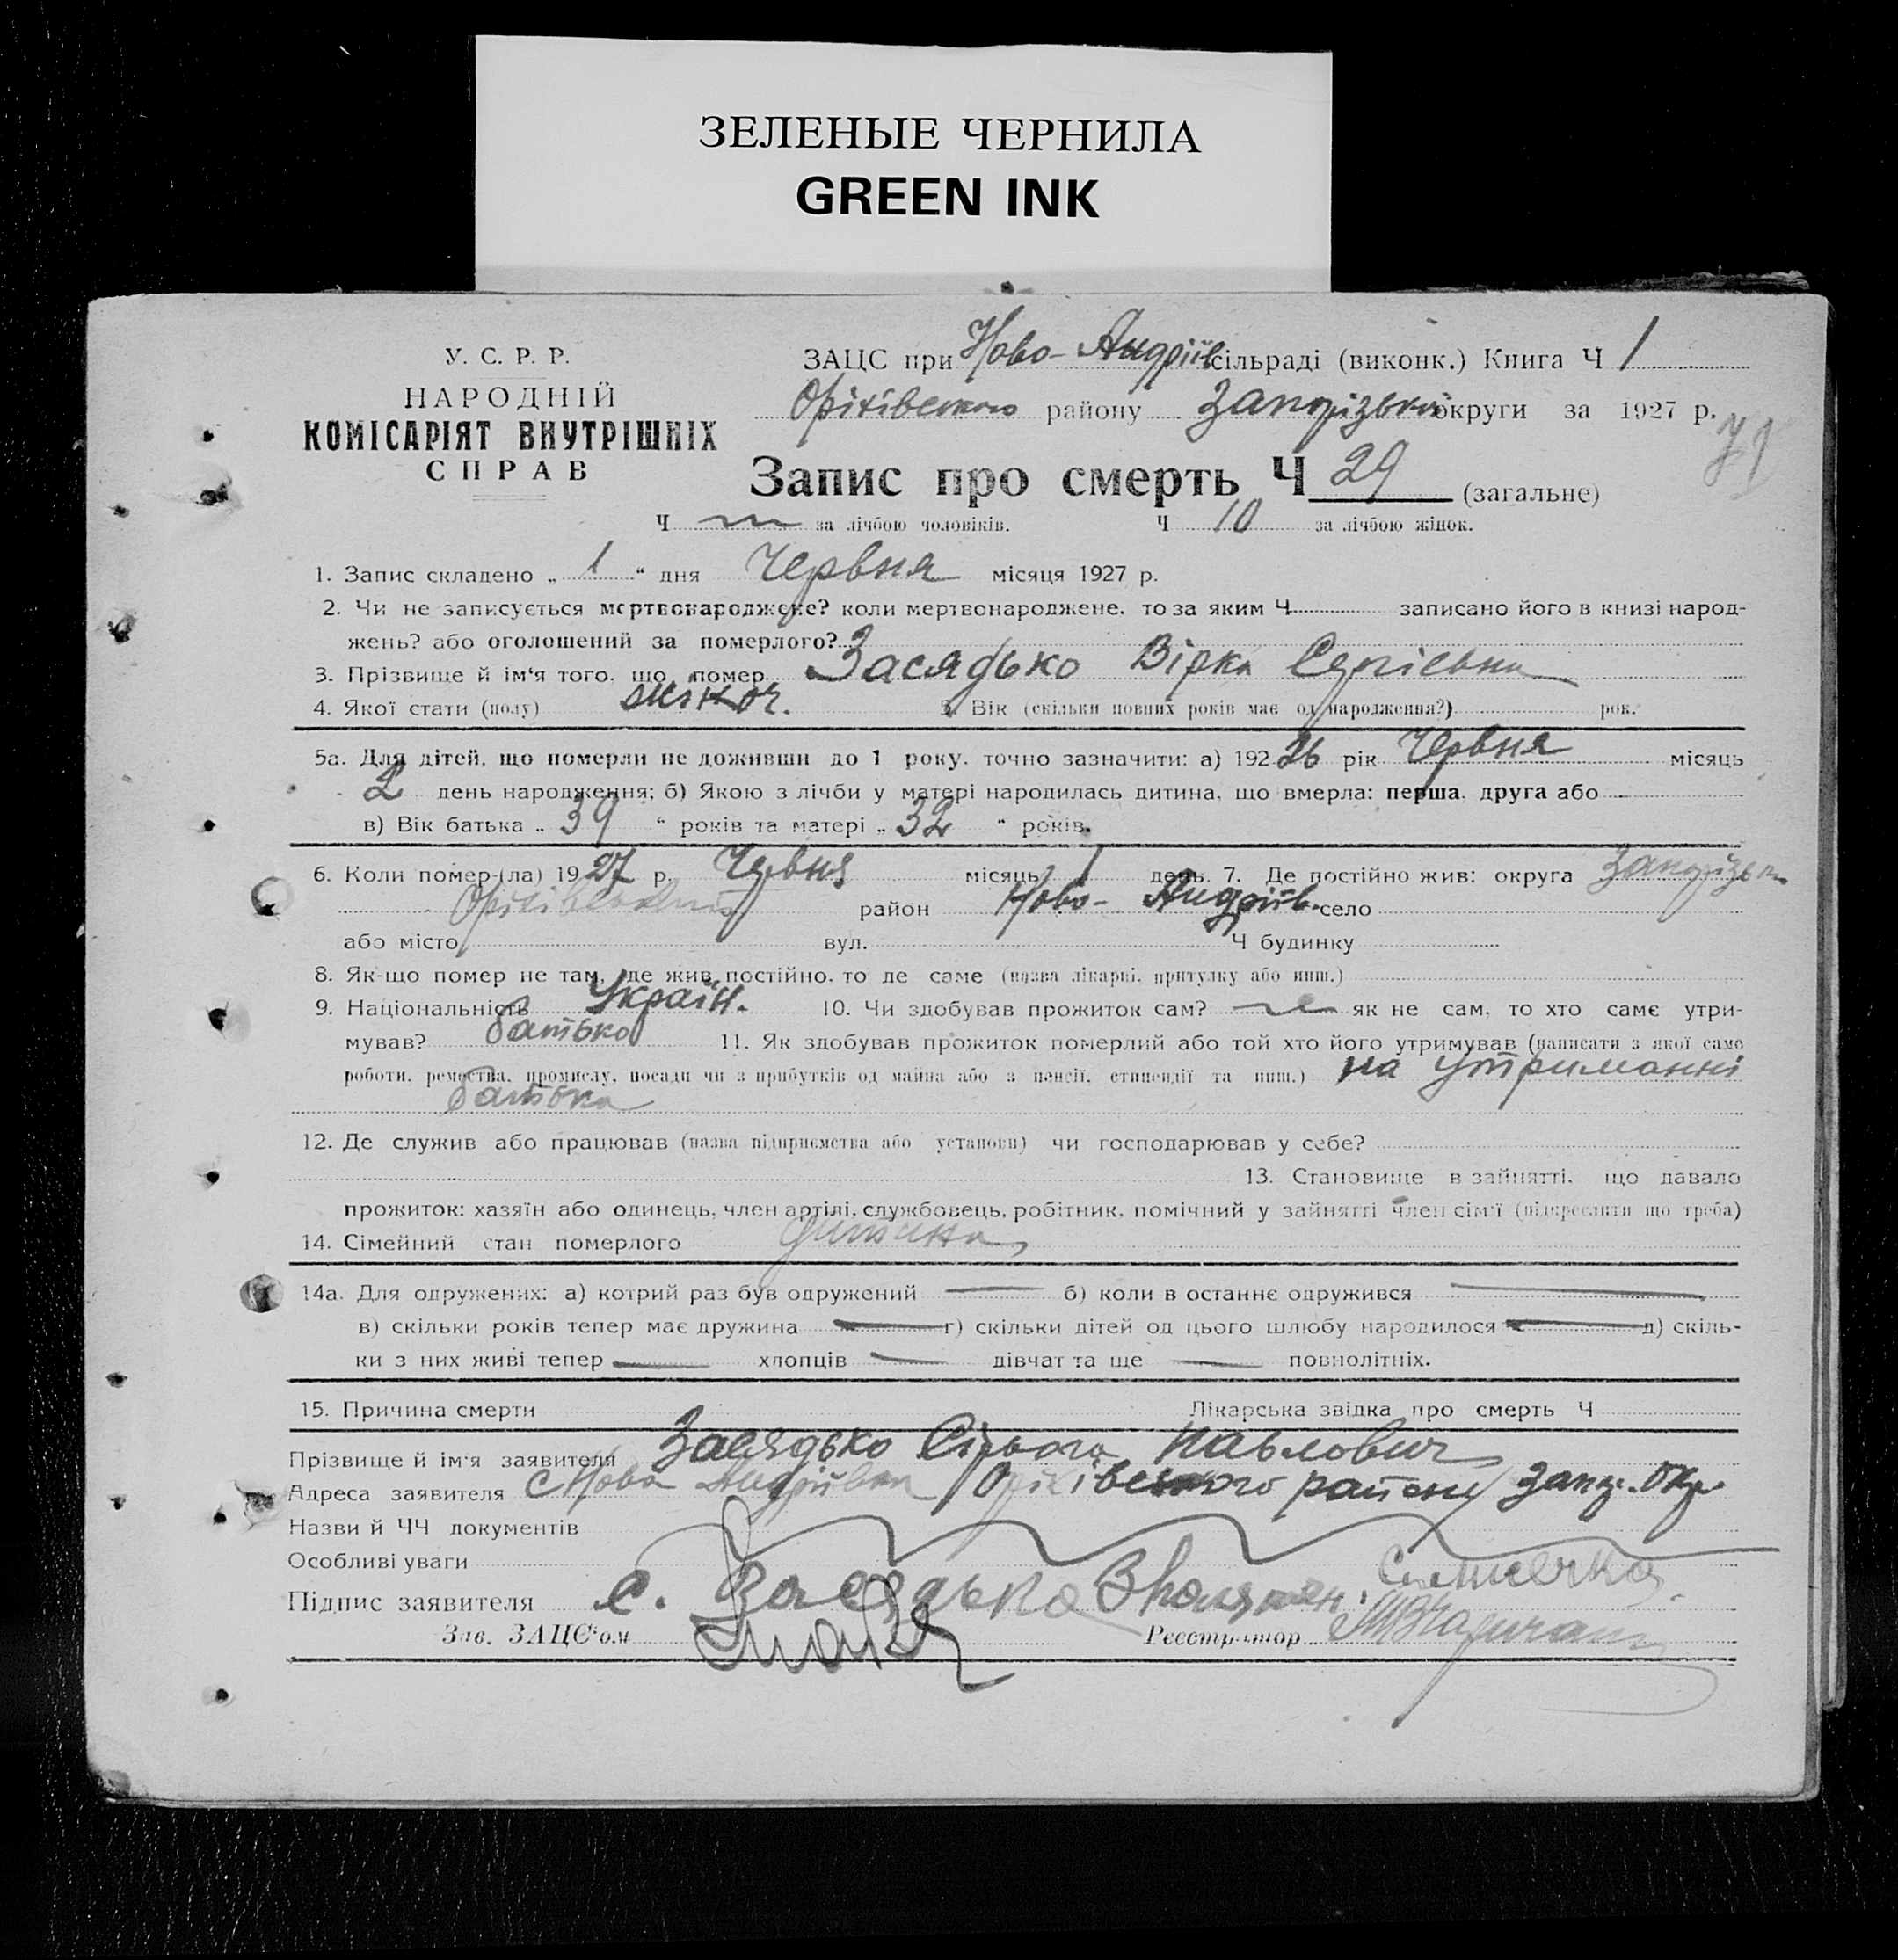 ЗЕЛЕНЫЕ ЧЕРНИЛА
GREEN INK
У. С. Р. Р.
НАРОДНІЙ
КОМІСАРІЯТ ВНУТРІШНІХ
СПРАВ
ЗАЦС при Ново-Андріїв сільраді (виконк.) Книга Ч 1
Оріхівського району Запорізької округи за 1927 р.
71
Запис про смерть Ч 29 (загальне)
Ч за лічбою чоловіків. Ч 10 за лічбою жінок.
1. Запис складено „ 1 “ дня Червня місяця 1927 р.
2. Чи не записується мертвонароджене? коли мертвонароджене, то за яким Ч записано його в книзі народ-
жень? або оголошений за померлого?
3. Прізвище й ім‘я того, що помер Засядько Вірка Сергієвна
4. Якої стати (полу) жіноч. 5. Вік (скільки повних років має од народження?) рок.
5а. Для дітей, що померли не доживши до 1 року, точно зазначити: а) 192 26 рік Червня місяць
2 день народження; б) Якою з лічби у матері народилась дитина, що вмерла: перша, друга або
в) Вік батька „ 39 “ років та матері „ 32 “ років.
6. Коли помер-(ла) 19 27 р. Червня місяць 1 день. 7. Де постійно жив: округа Запорізьк
район Ново-Андріїв. село
або місто вул. Ч будинку
8. Як-що помер не там, де жив постійно, то де саме (назва лікарні, притулку або инш.)
9. Національність Україн. 10. Чи здобував прожиток сам? не як не сам, то хто саме утри-
мував? батько 11. Як здобував прожиток померлий або той хто його утримував (написати з якої саме
роботи, ремества, промислу, посади чи з прибутків од майна або з пенсії, стипендії та инш.) на утриманні
батька
12. Де служив або працював (назва підприємства або установи) чи господарював у себе?
13. Становище в зайнятті, що давало
прожиток: хазяїн або одинець, член артілі, службовець, робітник, помічний у зайнятті член сім‘ї (підкреслити що треба)
14. Сімейний стан померлого дитина
14а. Для одружених: а) котрий раз був одружений — б) коли в останнє одружився —
в) скільки років тепер має дружина — г) скільки дітей од цього шлюбу народилося — д) скіль-
ки з них живі тепер — хлопців — дівчат та ще — повнолітніх.
15. Причина смерти Лікарська звідка про смерть Ч
Прізвище й ім‘я заявителя Засядько Сірьога Павлович
Адреса заявителя с Ново Андрівка Оріхівского району Запор. Окр.
Назви й ЧЧ документів
Особливі уваги
Підпис заявителя С. Засядько
Зав. ЗАЦС‘ом Реєстратор